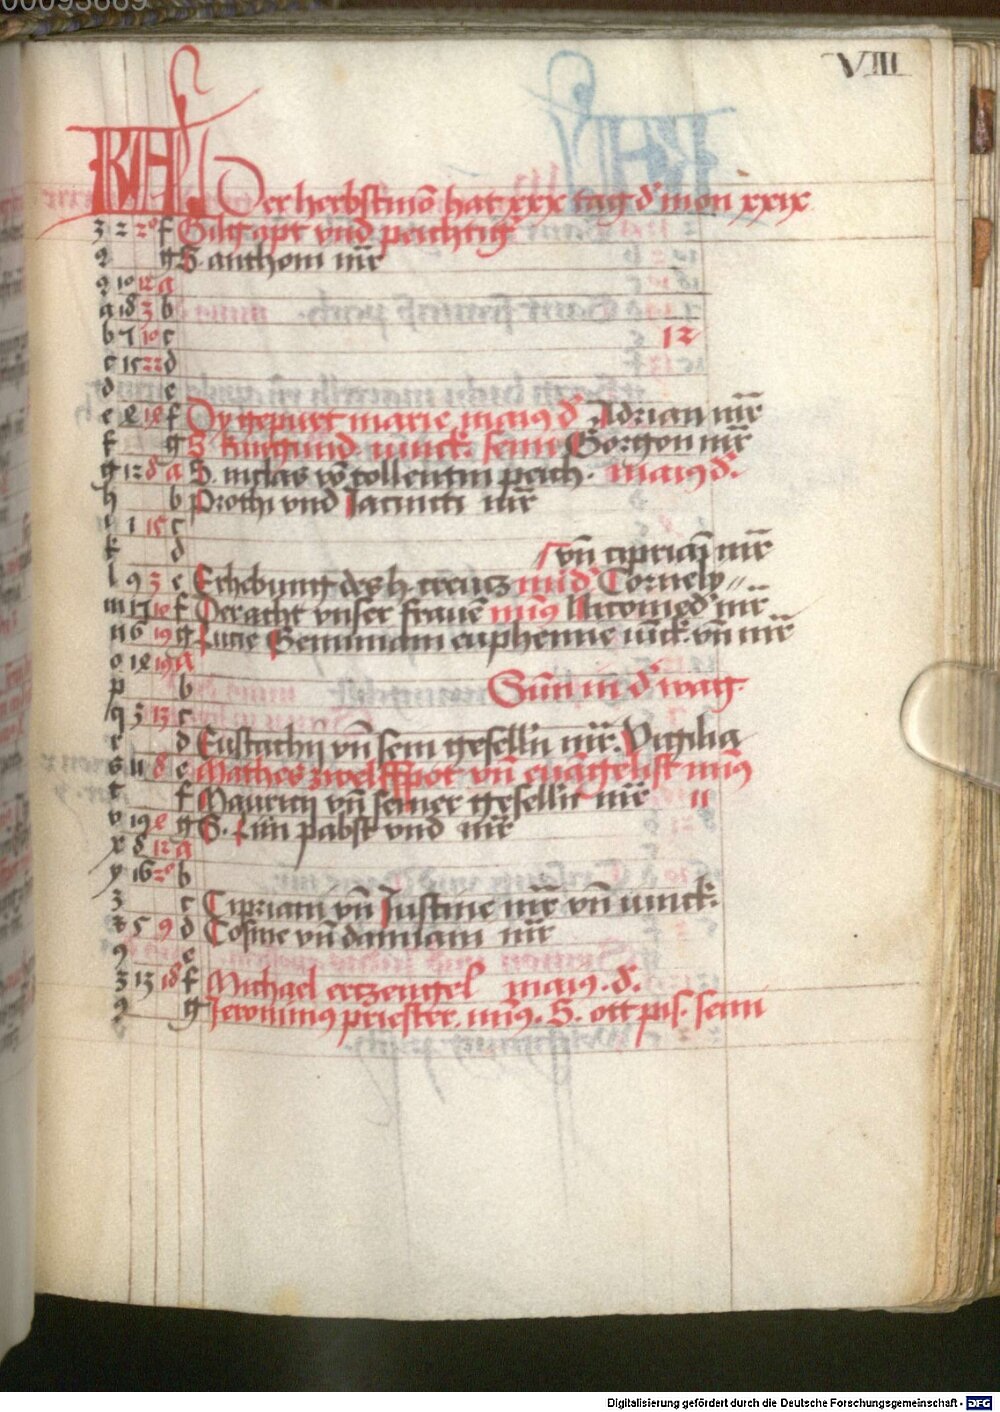 VIII
KAL Der herbstmō hat xxx tag d' mon xxix
f Gilg apt vnd peichtig'
g S. anthoni mr̄
9 10 12 a
g 18 3 b
b 7 10 c 12
c 15 22 d
d e
e f Dy gepurt marie maiꝰ d' Adrian mr̄
f g S. kungund. iunck. semi Gorgon mr̄
g 12 8 a S. niclas vō tollentin peich. maiꝰ d'.
h b Prothi vnd Jacincti mr̄
i 1 15 c
k d vn̄ cipriani mr̄
l 9 3 e Erhebung des h. creucz mi d' Cornely
m 17 f Der acht vnser frauē miꝰ Nicomed' mr̄
n 6 19 g Lucie Geminiani euphemie iūck. vn̄ mr̄
o 19 a
p b Sūn in d' wag.
q 3 13 c
r d Eustachij vn̄ sein geselln mr̄. Vigilia
s 11 8 e Matheus zwelffpot vn̄ ewāgelist miꝰ
t f Mauricij vn̄ seiner geselln mr̄ 11
v 19 g S. Lin pabst vnd mr̄
x 8 12 a
y 16 b
z c Cipriani vn̄ Justine mr̄ vn̄ iunck.
5 9 d Cosme vn̄ damiani mr̄
9 e
3 13 18 f Michael erczengel maiꝰ. d'.
g Jeronimꝰ priester. miꝰ. S. ott pis. semi
Digitalisierung gefördert durch die Deutsche Forschungsgemeinschaft - DFG